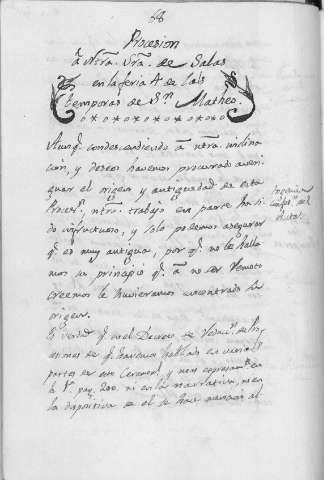 68
Procesion
à Ntra. Sra. de Salas
en la feria 4 de las
temporas de Sn. Matheo.
Aunq. condescendiendo à ntra. inclina
cion, y deseo havemos procurado averi
guar el origen y antiguedad de esta
Proces.n ntro. trabajo en parte ha si
do infructuoso, y solo podemos asegurar
q. es muy antigua, por q. no le halla
mos un principio q. à no ser remoto
creemos le huvieramos encontrado la
origen.
Es verdad q. en el Decreto de
de q. havemos hablado en varias
partes de este Ceremon.l y
la pag. 200. ni en la narrativa, ni en
la dispositiva se